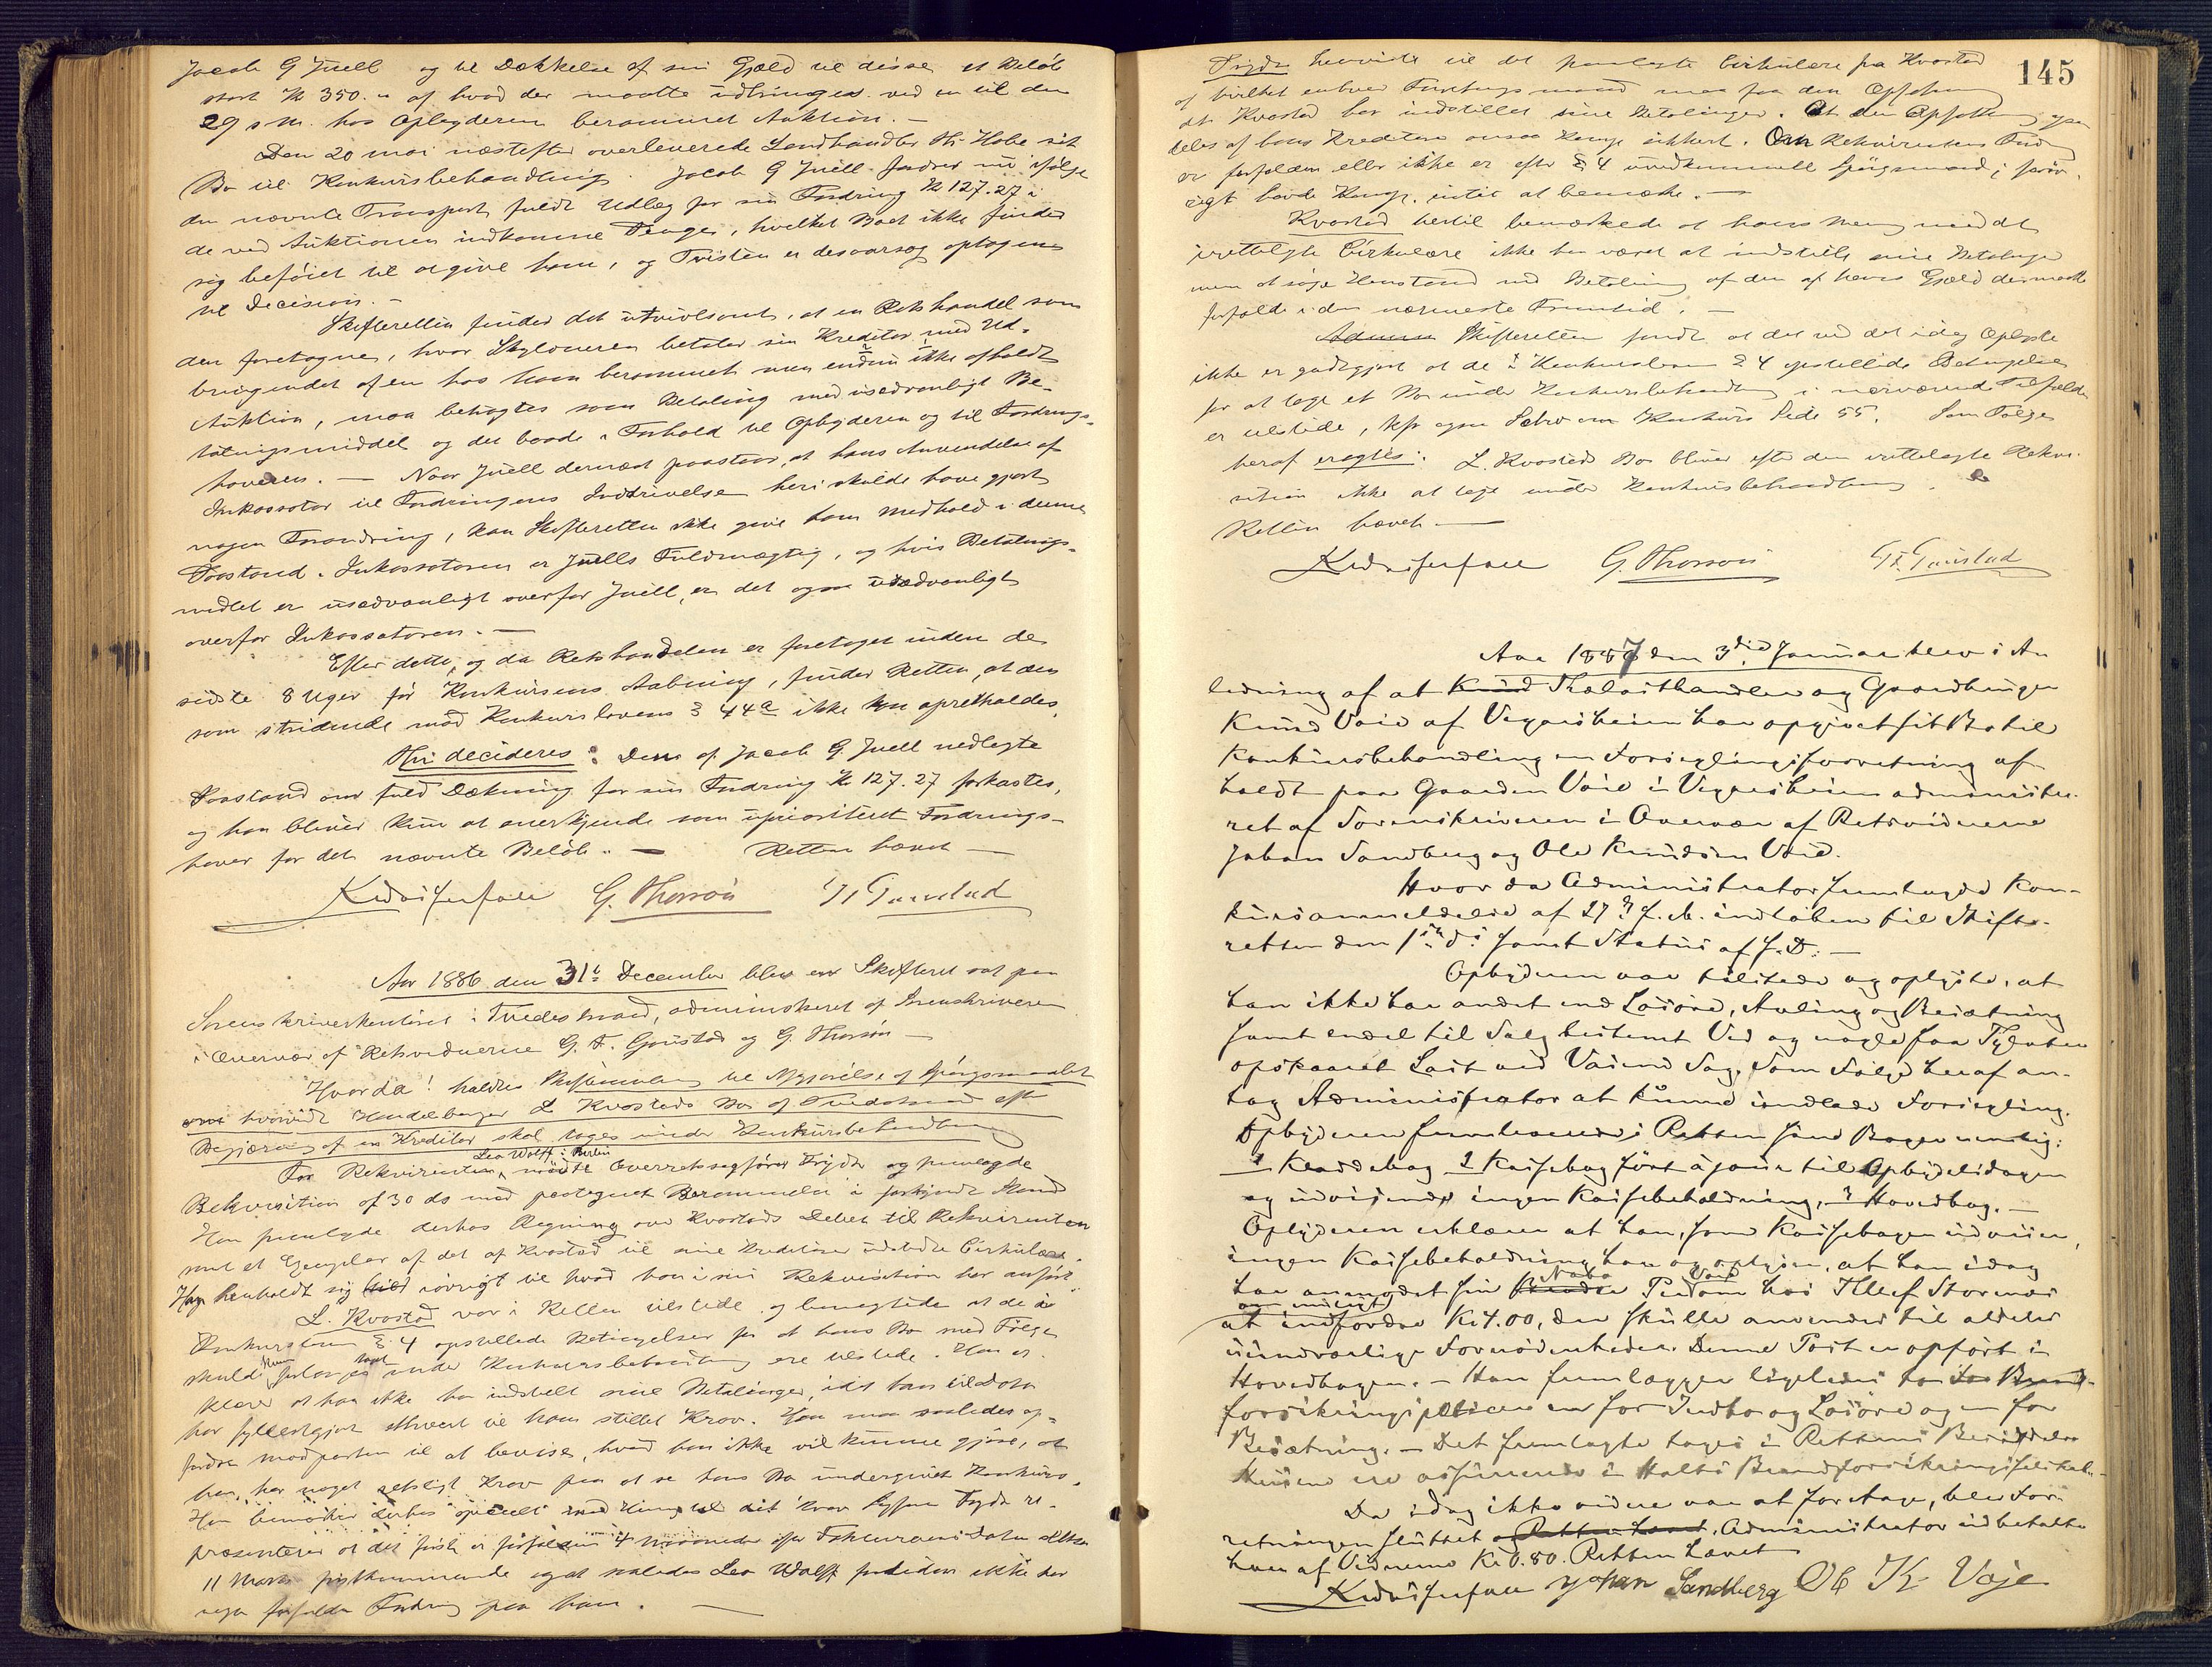 Jacob G Juell og til Dækkelse af sin Gjæld til disse et Beløb
stort Kr 350. " af hvad der maatte udbringes ved en til den
29 s M. hos Opbyderen berammet Auktion. —
Den 20 mai næstefter overleverede Landhandler Hr. Hobe sit
Bo til Konkursbehandling. Jacob G Juell fordrer nu ifølge
den nævnte Transport fuldt Udlæg for sin Fordring Kr 127.27 i
de ved Auktionen indkomne Penge, hvilket Boet ikke finder
sig beføiet til at give ham, og Tvisten er desaarsag optagen
til Decision. —
Skifteretten finder det utvivlsomt, at en Retshandel som
den foretagne, hvor Skyldneren betaler sin Kreditor med Ud-
bringendet af en hos ham berammet men endnu ikke afholdt
Auktion, maa betragtes som Betaling med usædvanligt Be-
talningsmiddel og det baade i Forhold til Opbyderen og til Fordrings-
haveren. — Naar Juell dernæst paastaar, at hans Anvendelse af
Inkassator til Fordringens Inddrivelse heri skulde have gjort
nogen Forandring, kan Skifteretten ikke give ham Medhold i denne
Paastand. Inkassatoren er Juells Fuldmægtig, og hvis Betalings-
midlet er usædvanligt overfor Juell, er det ogsaa usædvanligt
overfor Inkassatoren. —
Efter dette, og da Retshandelen er foretaget inden de
sidste 8 Uger før Konkursens Aabning, finder Retten, at den
som stridende mod Konkurslovens § 44a ikke kan opretholdes.
Thi decideres: Den af Jacob G. Juell nedlagte
Paastand om fuld Dækning for sin Fordring Kr 127.27 forkastes,
og han bliver kun at anerkjende som uprioriteret Fordrings-
haver for det nævnte Beløb. — Retten hævet —
G. Thorson
Aar 1886 den 31t December blev en Skifteret sat paa
Sorenskriverkontoret i Tvedestrand, administreret af Sorenskriveren
i Overvær af Retsvidnerne G. F. Goustad og G. Thorson —
Hvor da! holdtes Skiftesamling til Afgjørelse af Spørgsmaalet
om hvorvidt Handelsborger L Kvastads Bo af Tvedestrand efter
Begjæring af en Kreditor skal tages under Konkursbehandling
Leo Wolff i Berlin
For Rekvirenten, mødte Overretssagfører Frydn og fremlagde
Rekvisition af 30 ds med paategnet Berammelse i forkyndt Stand
Han fremlagde derhos Regning over Kvastads Debet til Rekvirenten
samt et Exemplar af det af Kvastad til sine Kreditorer udstedte Cirkulære.
Han henholdt sig iøvrigt til hvad han i sin Rekvisition har anført
L. Kvastad var i Retten tilstede og benegtede at de i
Konkurslovens § 4 opstillede Betingelser for at hans Bo med Følge
skulde kunne forlanges taget under Konkursbehandling ere tilstede. Han er
klærer at han ikke har indstillet sine Betalinger, idet han til Dato
har fyldestgjort ethvert til ham stillet Krav. Han maa saaledes op-
fordre modparten til at bevise, hvad han ikke vil kunne gjøre, at
han har noget retsligt Krav paa at se hans Bo undergivet Konkurs.
præsenterer at det først er forfalden 4 maaneder efter Fakturaens Dato altsaa
11 Marts førstkommende og at saaledes Leo Wolff fortiden ikke har
nogen forfalden Fordring paa ham. —
145
Frydn henviste til det fremlagte Cirkulære fra Kvastad
af hvilket enhver Forretningsmand maa faa den Opfatning
at Kvastad har indstillet sine Betalinger. At den Opfatning ogsaa
deles af hans Kreditorer ansaa Komp. sikkert. Om Rekvirentens Fordring
er forfalden eller ikke er efter § 4 uvedkommende Spørgsmaal; forøv-
rigt havde Komp. intet at bemærke. —
Kvastad hertil bemærkede at hans Mening med det
irettelagte Cirkulære ikke har været at indstille sine Betalinger
men at søge Henstand med Betaling af den af hans Gjæld der maatte
forfalde i den nærmeste Fremtid. —
Skifteretten fandt at det ved det idag Oplyste
ikke er godtgjort at de i Konkursloven § 4 opstillede Betingelser
for at tage et Bo under Konkursbehandling i nærværende Tilfælde
er tilstede, kfr ogsaa Schro om Konkurs Side 55. Som Følge
heraf eragtes: L. Kvastads Bo bliver efter den irettelagte Rekvi-
sition ikke at tage under Konkursbehandling.
Retten hævet —
G. Thorson
Aar 1887 den 3die Januar blev i An
ledning af at Knud Trælasthandler og Gaardbruger
Knud Vaie af Vegarsheien har opgivet sit Bo til
Konkursbehandling en Forseglingsforretning af-
holdt paa Gaarden Vaie i Vegarsheien administre-
ret af Sorenskriveren i Overvær af Retsvidnerne
Johan Sandberg og Ole Knudsen Vaie.
Hvor da Administrator fremlagde Kon-
kursanmeldelse af 27de f. M. indløben til Skifte-
retten den 1ste ds samt Status af s. D. —
Opbyderen var tilstede og oplyste, at
han ikke har andet end Løsøre, Avling og Besætning
samt endel til Salg bestemt Ved og nogle faa Tylvter
opskaaret Last ved Vaiens Sag. Som Følge heraf an-
tog Administrator at kunne undlade Forsegling.
Opbyderen fremleverede i Retten sine Bøger nemlig:
1 Kladdebog 1 Kassebog ført à jour til Opbydelsdagen
og udvisende ingen Kassebeholdning, 1 Hovedbog. —
Opbyderen erklærer at han, som Kassebogen udviser,
ingen Kassebeholdning har og oplyser, at han idag
har anmodet sin Broder Nabo Peder Vaie om hos Ellef Stornes
om muligt
at indfordre Kr 4.00, der skulle anvendes til aldeles
uundværlige Fornødenheder. Denne Post er opført i
Hovedbogen. — Han fremlægger ligeledes to Brand-
forsikringspolicer en for Indbo og Løsøre og en for
Besætning. — Det fremlagte toges i Rettens Besiddelse
Husene ere assurerede i Holts Brandforsikringsselskab. —
Da idag ikke videre var at foretage, blev For-
retningen sluttet og Retten hævet. Administrator udbetalte
hver af Vidnerne Kr 0.80. Retten hævet
Johan Sandberg Ole K Vaje